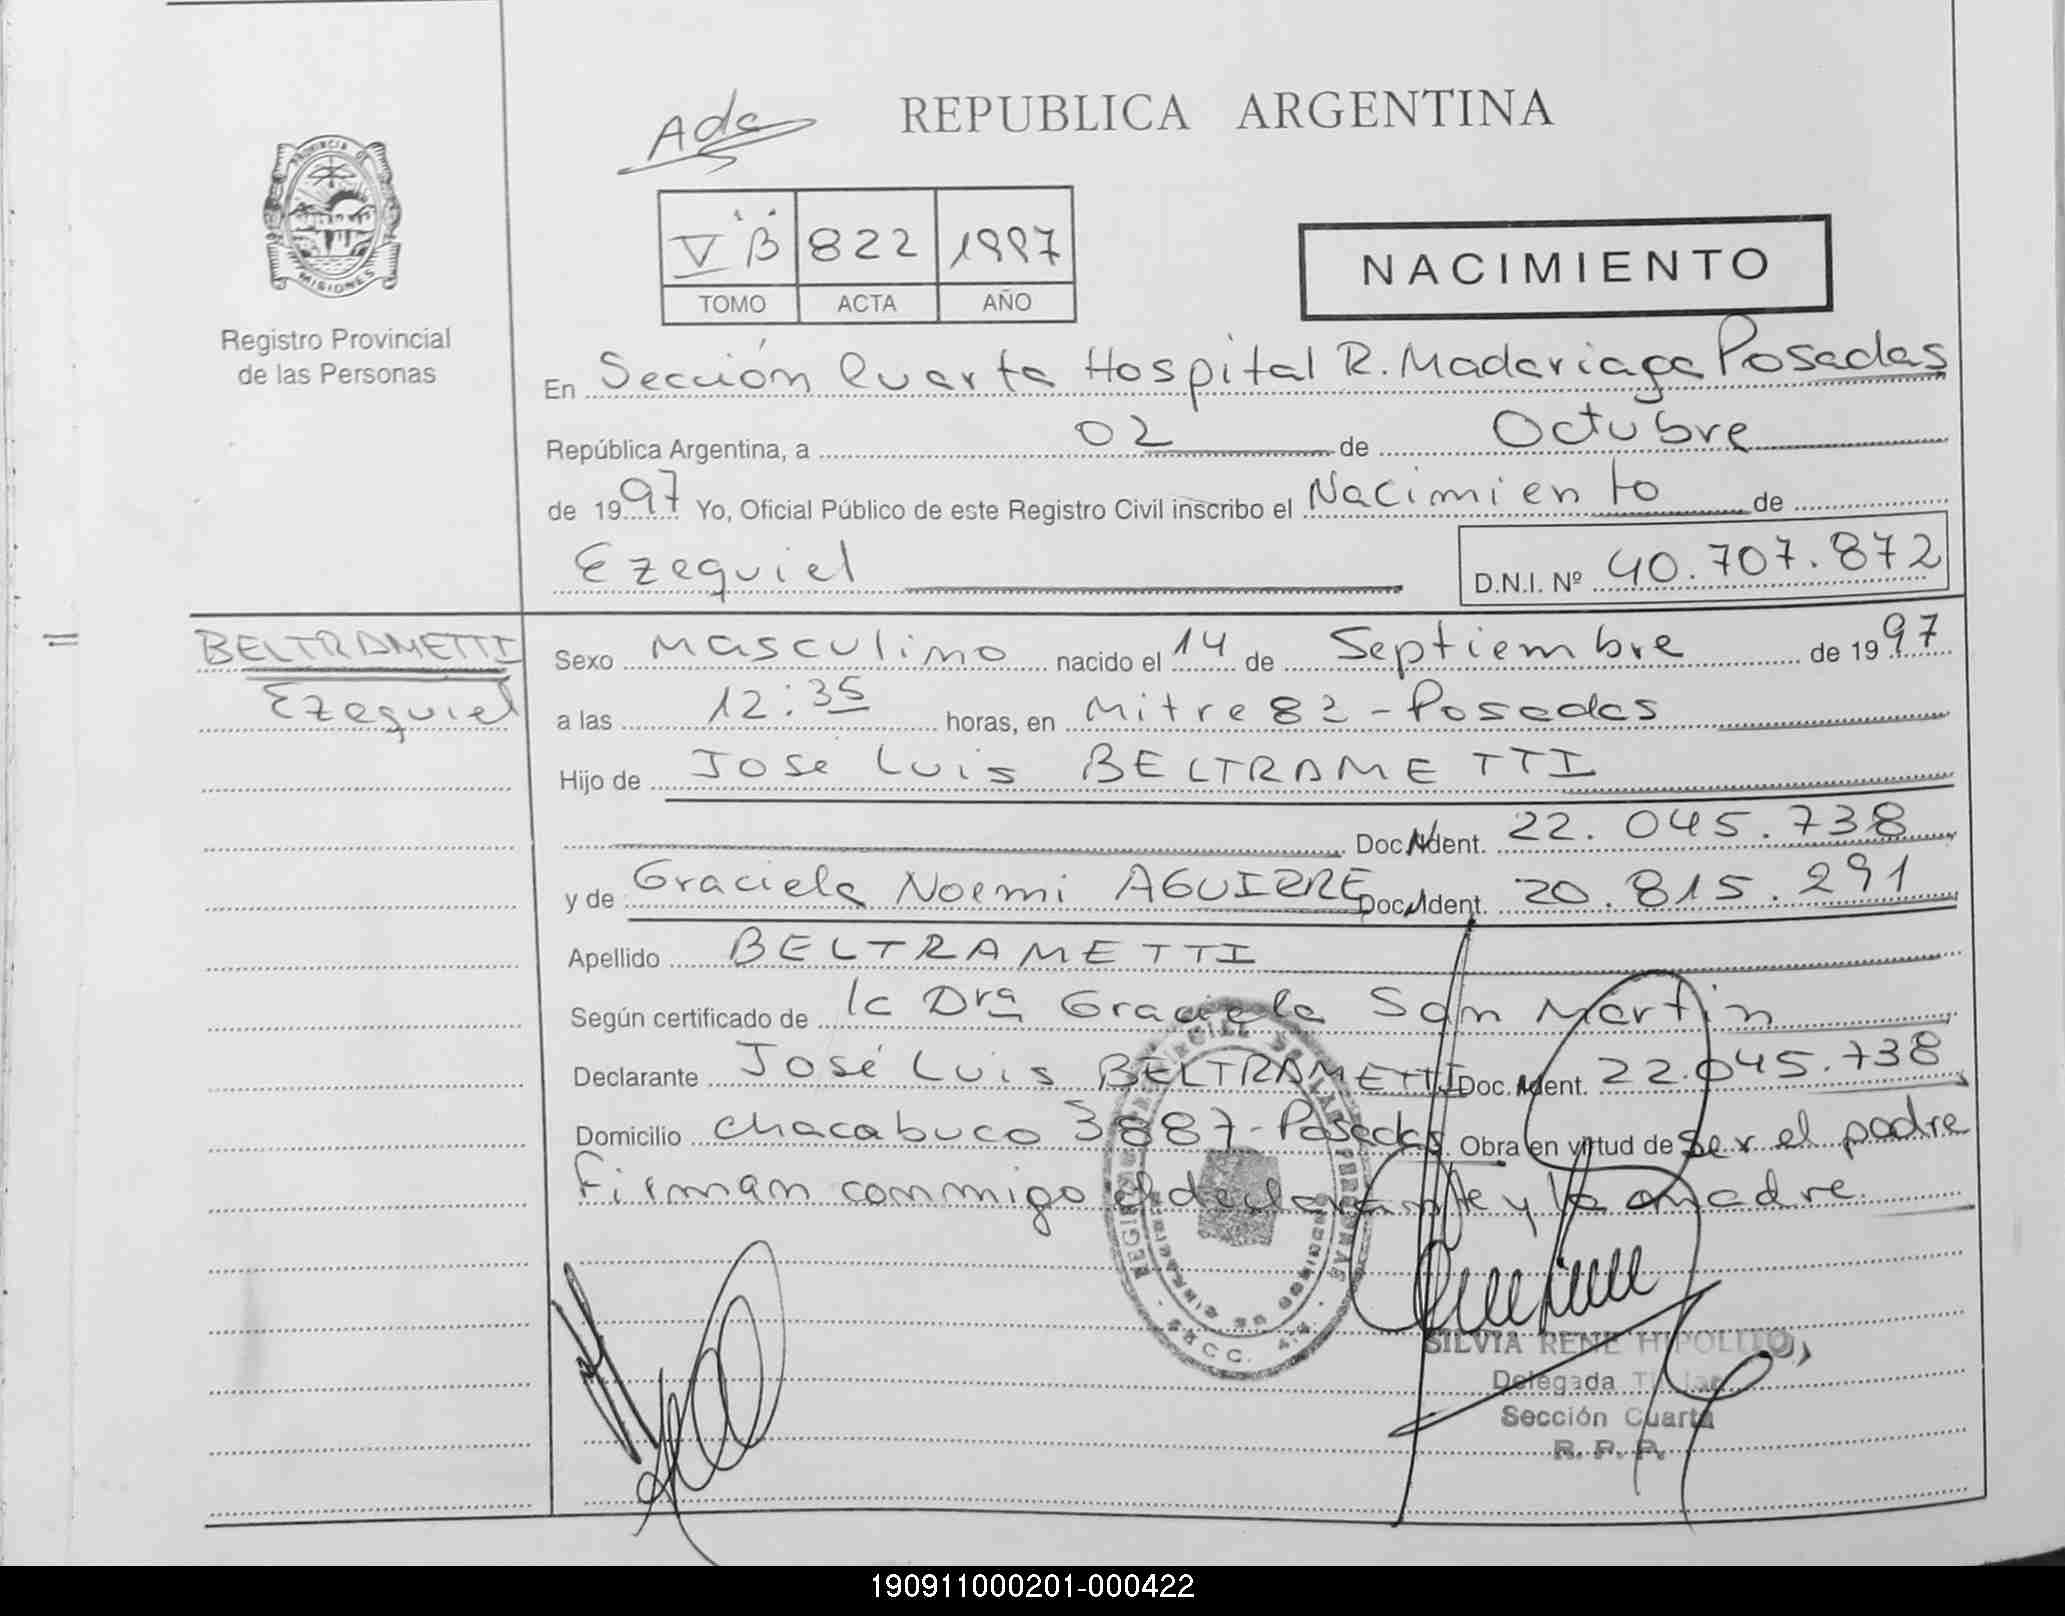 Ada
REPUBLICA ARGENTINA
PROVINCIA DE
MISIONES
V "B" 822 1997
TOMO ACTA AÑO
NACIMIENTO
Registro Provincial
de las Personas
En Sección Cuarta Hospital R. Madariaga Posadas
República Argentina, a 02 de Octubre
de 1997 Yo, Oficial Público de este Registro Civil inscribo el Nacimiento de
Ezequiel D.N.I. Nº 40.707.872
BELTRAMETTI
Ezequiel
Sexo Masculino nacido el 14 de Septiembre de 1997
a las 12:35 horas, en Mitre 82 - Posadas
Hijo de José Luis BELTRAMETTI
Doc. Ident. 22.045.738
y de Graciela Noemi AGUIRRE Doc. Ident. 20.815.291
Apellido BELTRAMETTI
Según certificado de la Dra Graciela San Martin
Declarante José Luis BELTRAMETTI Doc. Ident. 22.045.738
Domicilio Chacabuco 3887 - Posadas. Obra en virtud de ser el padre
Firman conmigo el declarante y la madre.
REGISTRO PROVINCIAL DE LAS PERSONAS
SILVIA RENE HIPOLITO
Delegada Titular
Sección Cuarta
R. P. P.
190911000201-000422